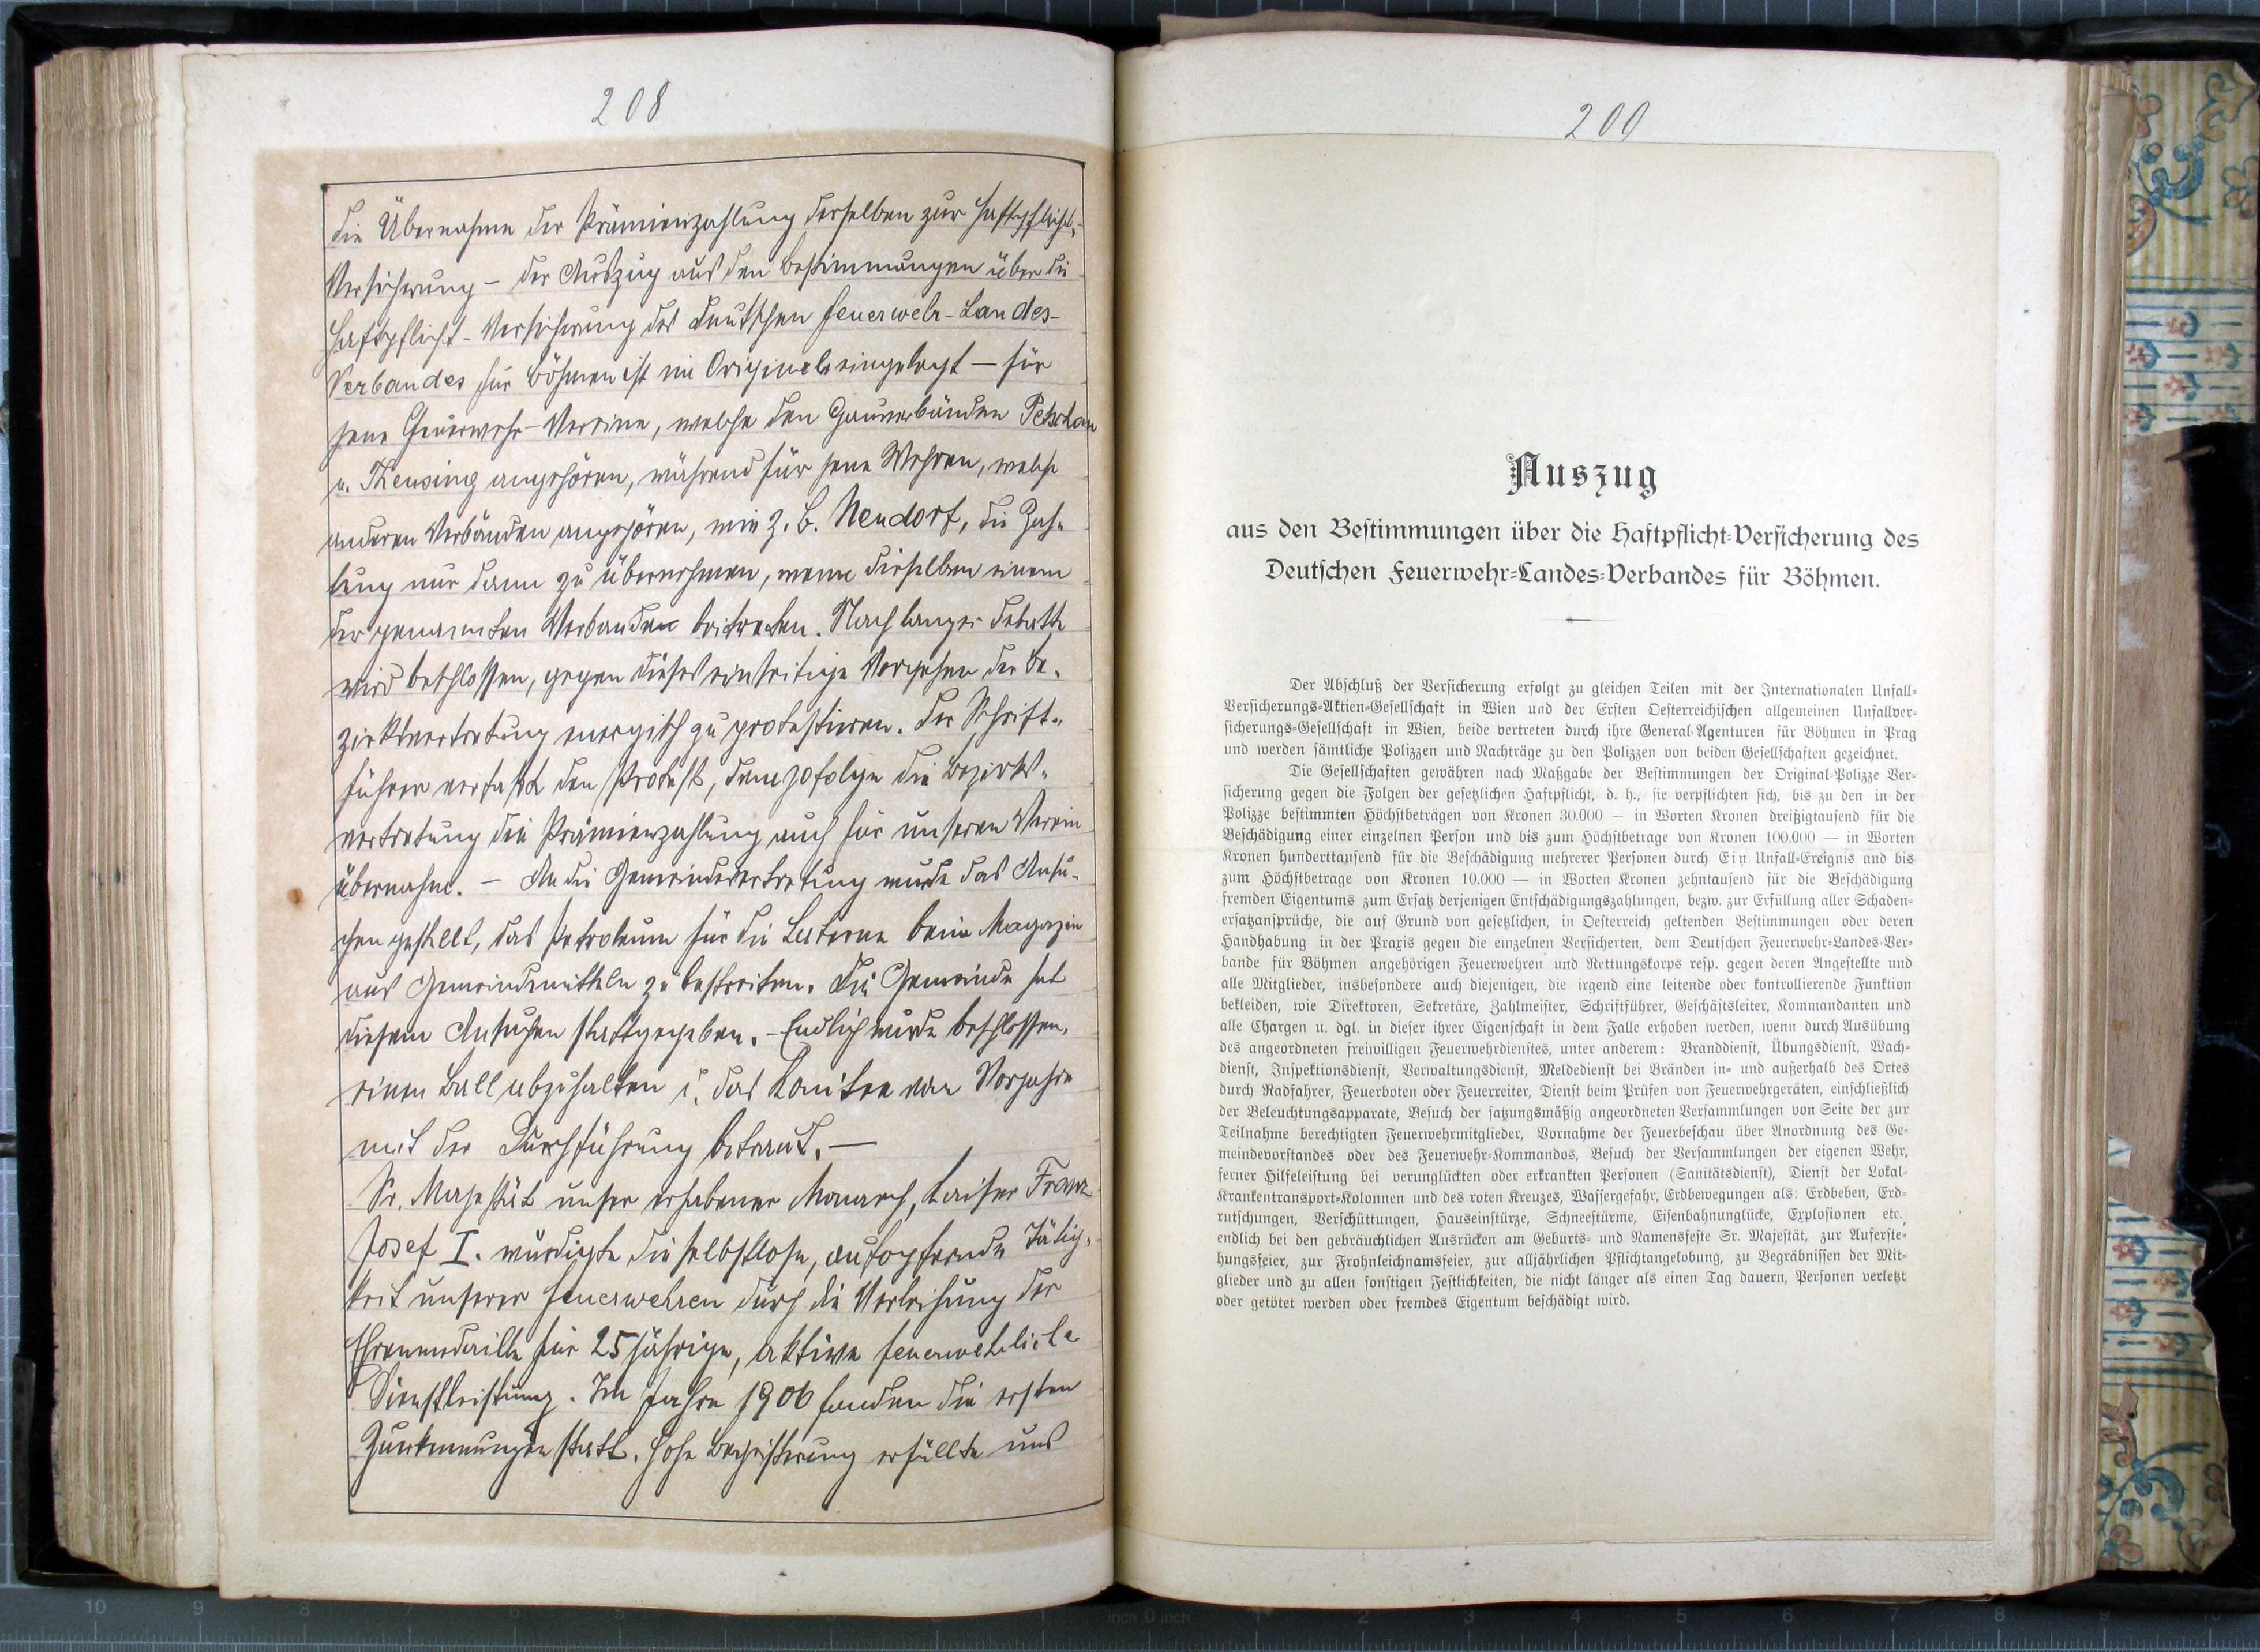 208
die Übernahme der Prämienzahlung derselben zur Haftpflicht-
Versicherung – der Auszug aus den Bestimmungen über die
Haftpflicht-Versicherung des Deutschen Feuerwehr-Landes-
Verbandes für Böhmen ist im Originale eingelegt — für
jene Feuerwehr-Vereine, welche den Gauverbänden Petschau
u. Theusing angehören, während für jene Wehren, welche
anderen Verbänden angehören, wie z. B. Neudorf, die Zah-
lung nur dann zu übernehmen, wenn dieselben einem
der genannten Verbanden beitreten. Nach langer Debatte
wird beschlossen, gegen dieses einseitige Vorgehen der Be-
zirksvertretung energisch zu protestieren. Der Schrift-
führer verfaßt den Protest, demzufolge die Bezirks-
vertretung die Prämienzahlung auch für unseren Verein
übernahm. – An die Gemeindevertretung wurde das Ansu-
chen gestellt, das Petroleum für die Laterne beim Magazin
aus Gemeindemitteln zu bestreiten. Die Gemeinde hat
diesem Ansuchen stattgegeben. – Endlich wurde beschlossen,
einen Ball abzuhalten u. das Komitee vom Vorjahre
mit der Durchführung betraut. —
Sr. Majestät unser erhabener Monarch, Kaiser Franz
Josef I. würdigte die selbstlose, aufopfernde Tätig-
keit unserer Feuerwehren durch die Verleihung der
Ehrenmedaille für 25 jährige, aktive feuerwehrliche
Dienstleistung. Im Jahre 1906 fanden die ersten
Zuerkennungen statt. Hohe Begeisterung erfüllte uns
209
Auszug
aus den Bestimmungen über die Haftpflicht-Versicherung des
Deutschen Feuerwehr-Landes-Verbandes für Böhmen.
Der Abschluß der Versicherung erfolgt zu gleichen Teilen mit der Internationalen Unfall-
Versicherungs-Aktien-Gesellschaft in Wien und der Ersten Oesterreichischen allgemeinen Unfallver-
sicherungs-Gesellschaft in Wien, beide vertreten durch ihre General-Agenturen für Böhmen in Prag
und werden sämtliche Polizzen und Nachträge zu den Polizzen von beiden Gesellschaften gezeichnet.
Die Gesellschaften gewähren nach Maßgabe der Bestimmungen der Original-Polizze Ver-
sicherung gegen die Folgen der gesetzlichen Haftpflicht, d. h., sie verpflichten sich, bis zu den in der
Polizze bestimmten Höchstbeträgen von Kronen 30.000 — in Worten Kronen dreißigtausend für die
Beschädigung einer einzelnen Person und bis zum Höchstbetrage von Kronen 100.000 — in Worten
Kronen hunderttausend für die Beschädigung mehrerer Personen durch Ein Unfall-Ereignis und bis
zum Höchstbetrage von Kronen 10.000 — in Worten Kronen zehntausend für die Beschädigung
fremden Eigentums zum Ersatz derjenigen Entschädigungszahlungen, bezw. zur Erfüllung aller Schaden-
ersatzansprüche, die auf Grund von gesetzlichen, in Oesterreich geltenden Bestimmungen oder deren
Handhabung in der Praxis gegen die einzelnen Versicherten, dem Deutschen Feuerwehr-Landes-Ver-
bande für Böhmen angehörigen Feuerwehren und Rettungskorps resp. gegen deren Angestellte und
alle Mitglieder, insbesondere auch diejenigen, die irgend eine leitende oder kontrollierende Funktion
bekleiden, wie Direktoren, Sekretäre, Zahlmeister, Schriftführer, Geschäftsleiter, Kommandanten und
alle Chargen u. dgl. in dieser ihrer Eigenschaft in dem Falle erhoben werden, wenn durch Ausübung
des angeordneten freiwilligen Feuerwehrdienstes, unter anderem: Branddienst, Übungsdienst, Wach-
dienst, Inspektionsdienst, Verwaltungsdienst, Meldedienst bei Bränden in- und außerhalb des Ortes
durch Radfahrer, Feuerboten oder Feuerreiter, Dienst beim Prüfen von Feuerwehrgeräten, einschließlich
der Beleuchtungsapparate, Besuch der satzungsmäßig angeordneten Versammlungen von Seite der zur
Teilnahme berechtigten Feuerwehrmitglieder, Vornahme der Feuerbeschau über Anordnung des Ge-
meindevorstandes oder des Feuerwehr-Kommandos, Besuch der Versammlungen der eigenen Wehr,
ferner Hilfeleistung bei verunglückten oder erkrankten Personen (Sanitätsdienst), Dienst der Lokal-
Krankentransport-Kolonnen und des roten Kreuzes, Wassergefahr, Erdbewegungen als: Erdbeben, Erd-
rutschungen, Verschüttungen, Hauseinstürze, Schneestürme, Eisenbahnunglücke, Explosionen etc.,
endlich bei den gebräuchlichen Ausrücken am Geburts- und Namensfeste Sr. Majestät, zur Auferste-
hungsfeier, zur Frohnleichnamsfeier, zur alljährlichen Pflichtangelobung, zu Begräbnissen der Mit-
glieder und zu allen sonstigen Festlichkeiten, die nicht länger als einen Tag dauern, Personen verletzt
oder getötet werden oder fremdes Eigentum beschädigt wird.
10 9 8 7 6 5 1 inch 0 inch 1 2 3 4 5 6 7 8 9 10